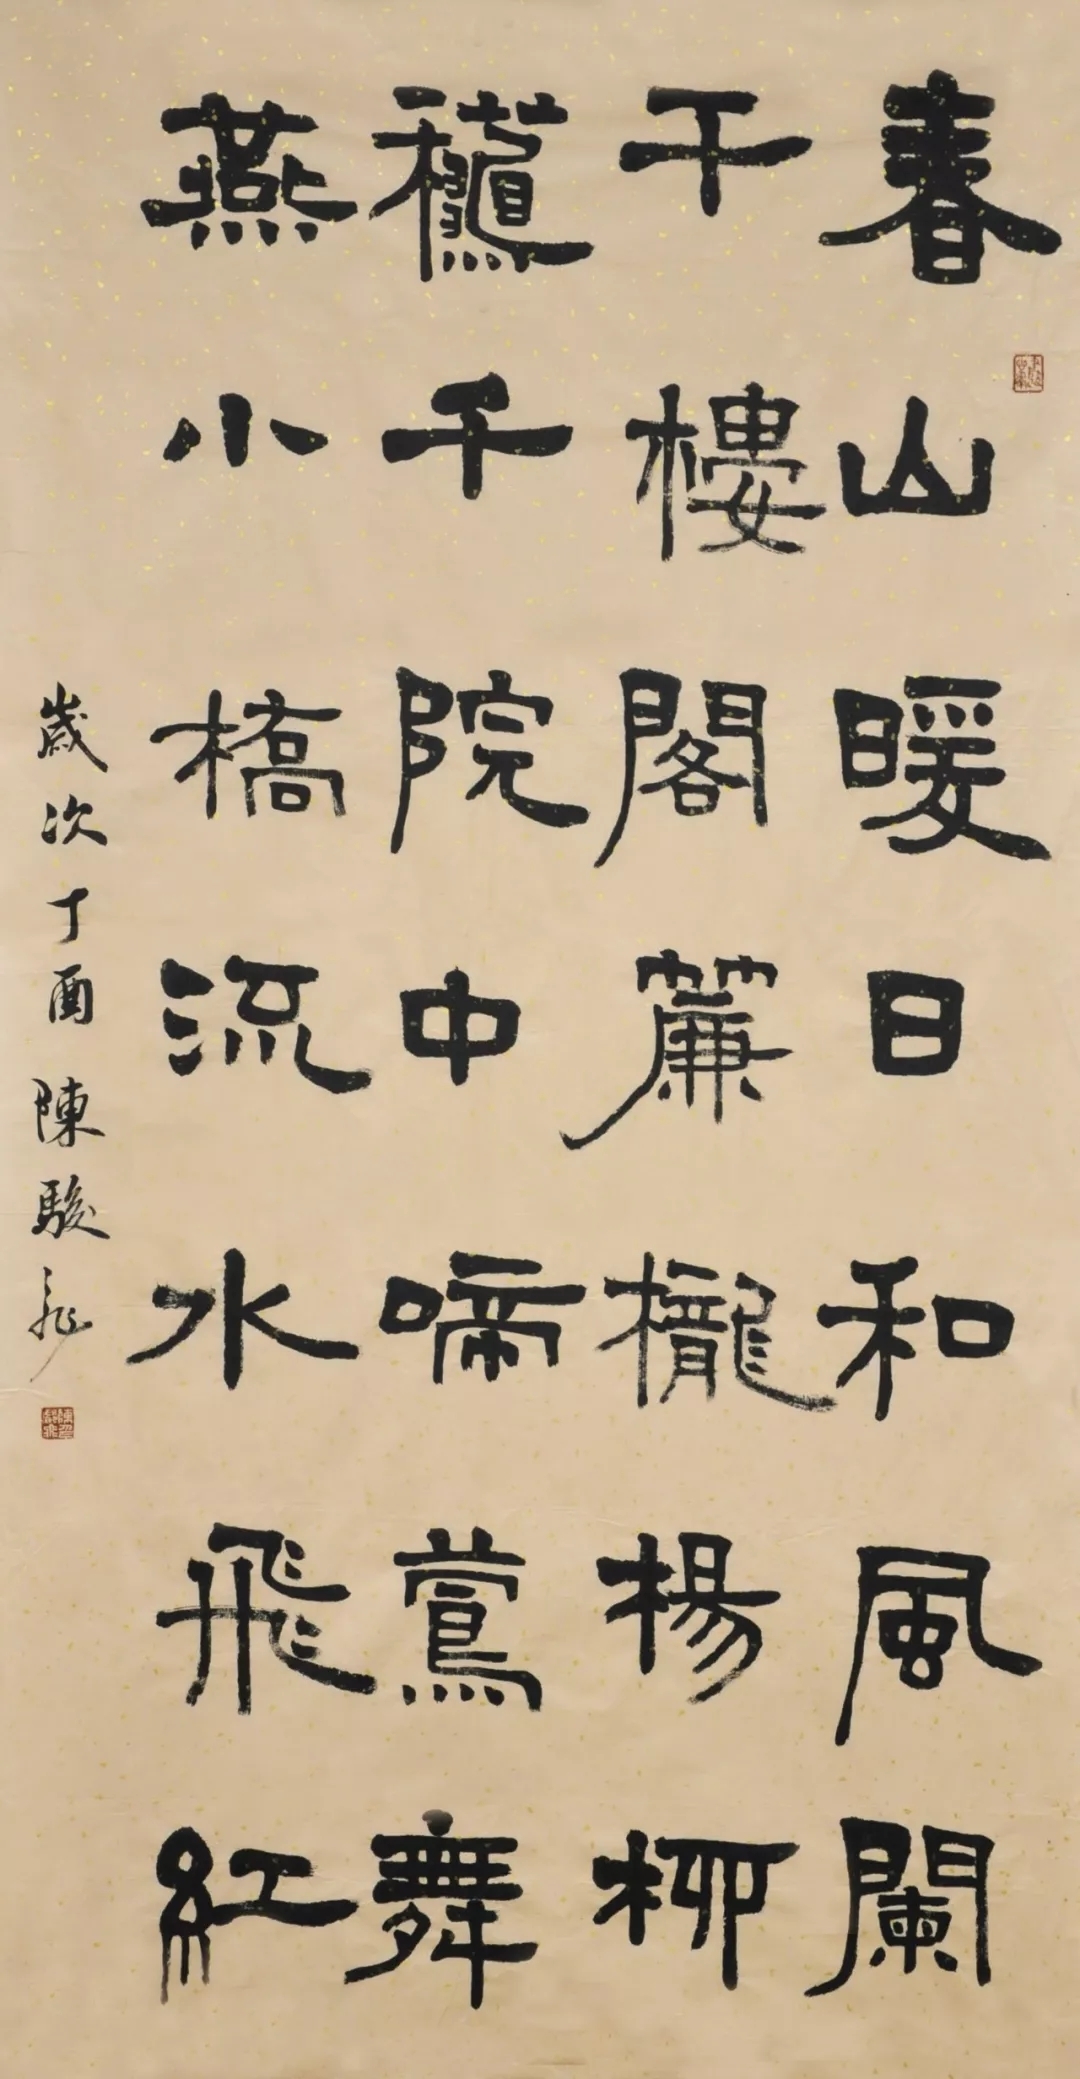 春山暖日和風闌
干樓閣簾櫳楊柳
龝千院中啼鶯舞
燕小橋流水飛紅
歲次丁酉陳駿